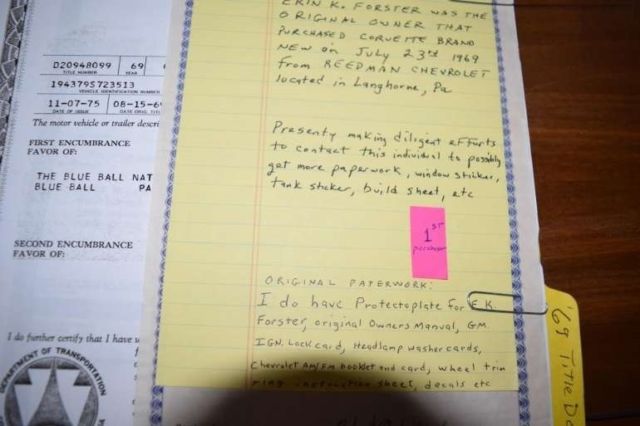 D20948099 69
TITLE NUMBER YEAR
194379S723513
VEHICLE IDENTIFICATION NUMBER
11-07-75 08-15-6
DATE OF ISSUE
The motor vehicle or trailer descri
FIRST ENCUMBRANCE
FAVOR OF:
THE BLUE BALL NAT
BLUE BALL PA
SECOND ENCUMBRANCE
FAVOR OF:
I do further certify that I have
DEPARTMENT OF TRANSPORTATION
ERIN K. FORSTER WAS THE
ORIGINAL OWNER THAT
PURCHASED CORVETTE BRAND
NEW on July 23rd 1969
From REEDMAN CHEVROLET
located in Langhorne, Pa
Presenty making diligent efforts
to contact this individual to possibly
get more paperwork, window sticker,
tank sticker, build sheet, etc
1ST
purchaser
ORIGINAL PATERWORK:
I do have Protectoplate for E.K.
Forster, original Owners Manual, GM.
IGN. Lock card, Headlamp washer cards,
Chevrolet AM/FM booklet and card, wheel trim
ring instruction sheet, decals etc
'69 Title